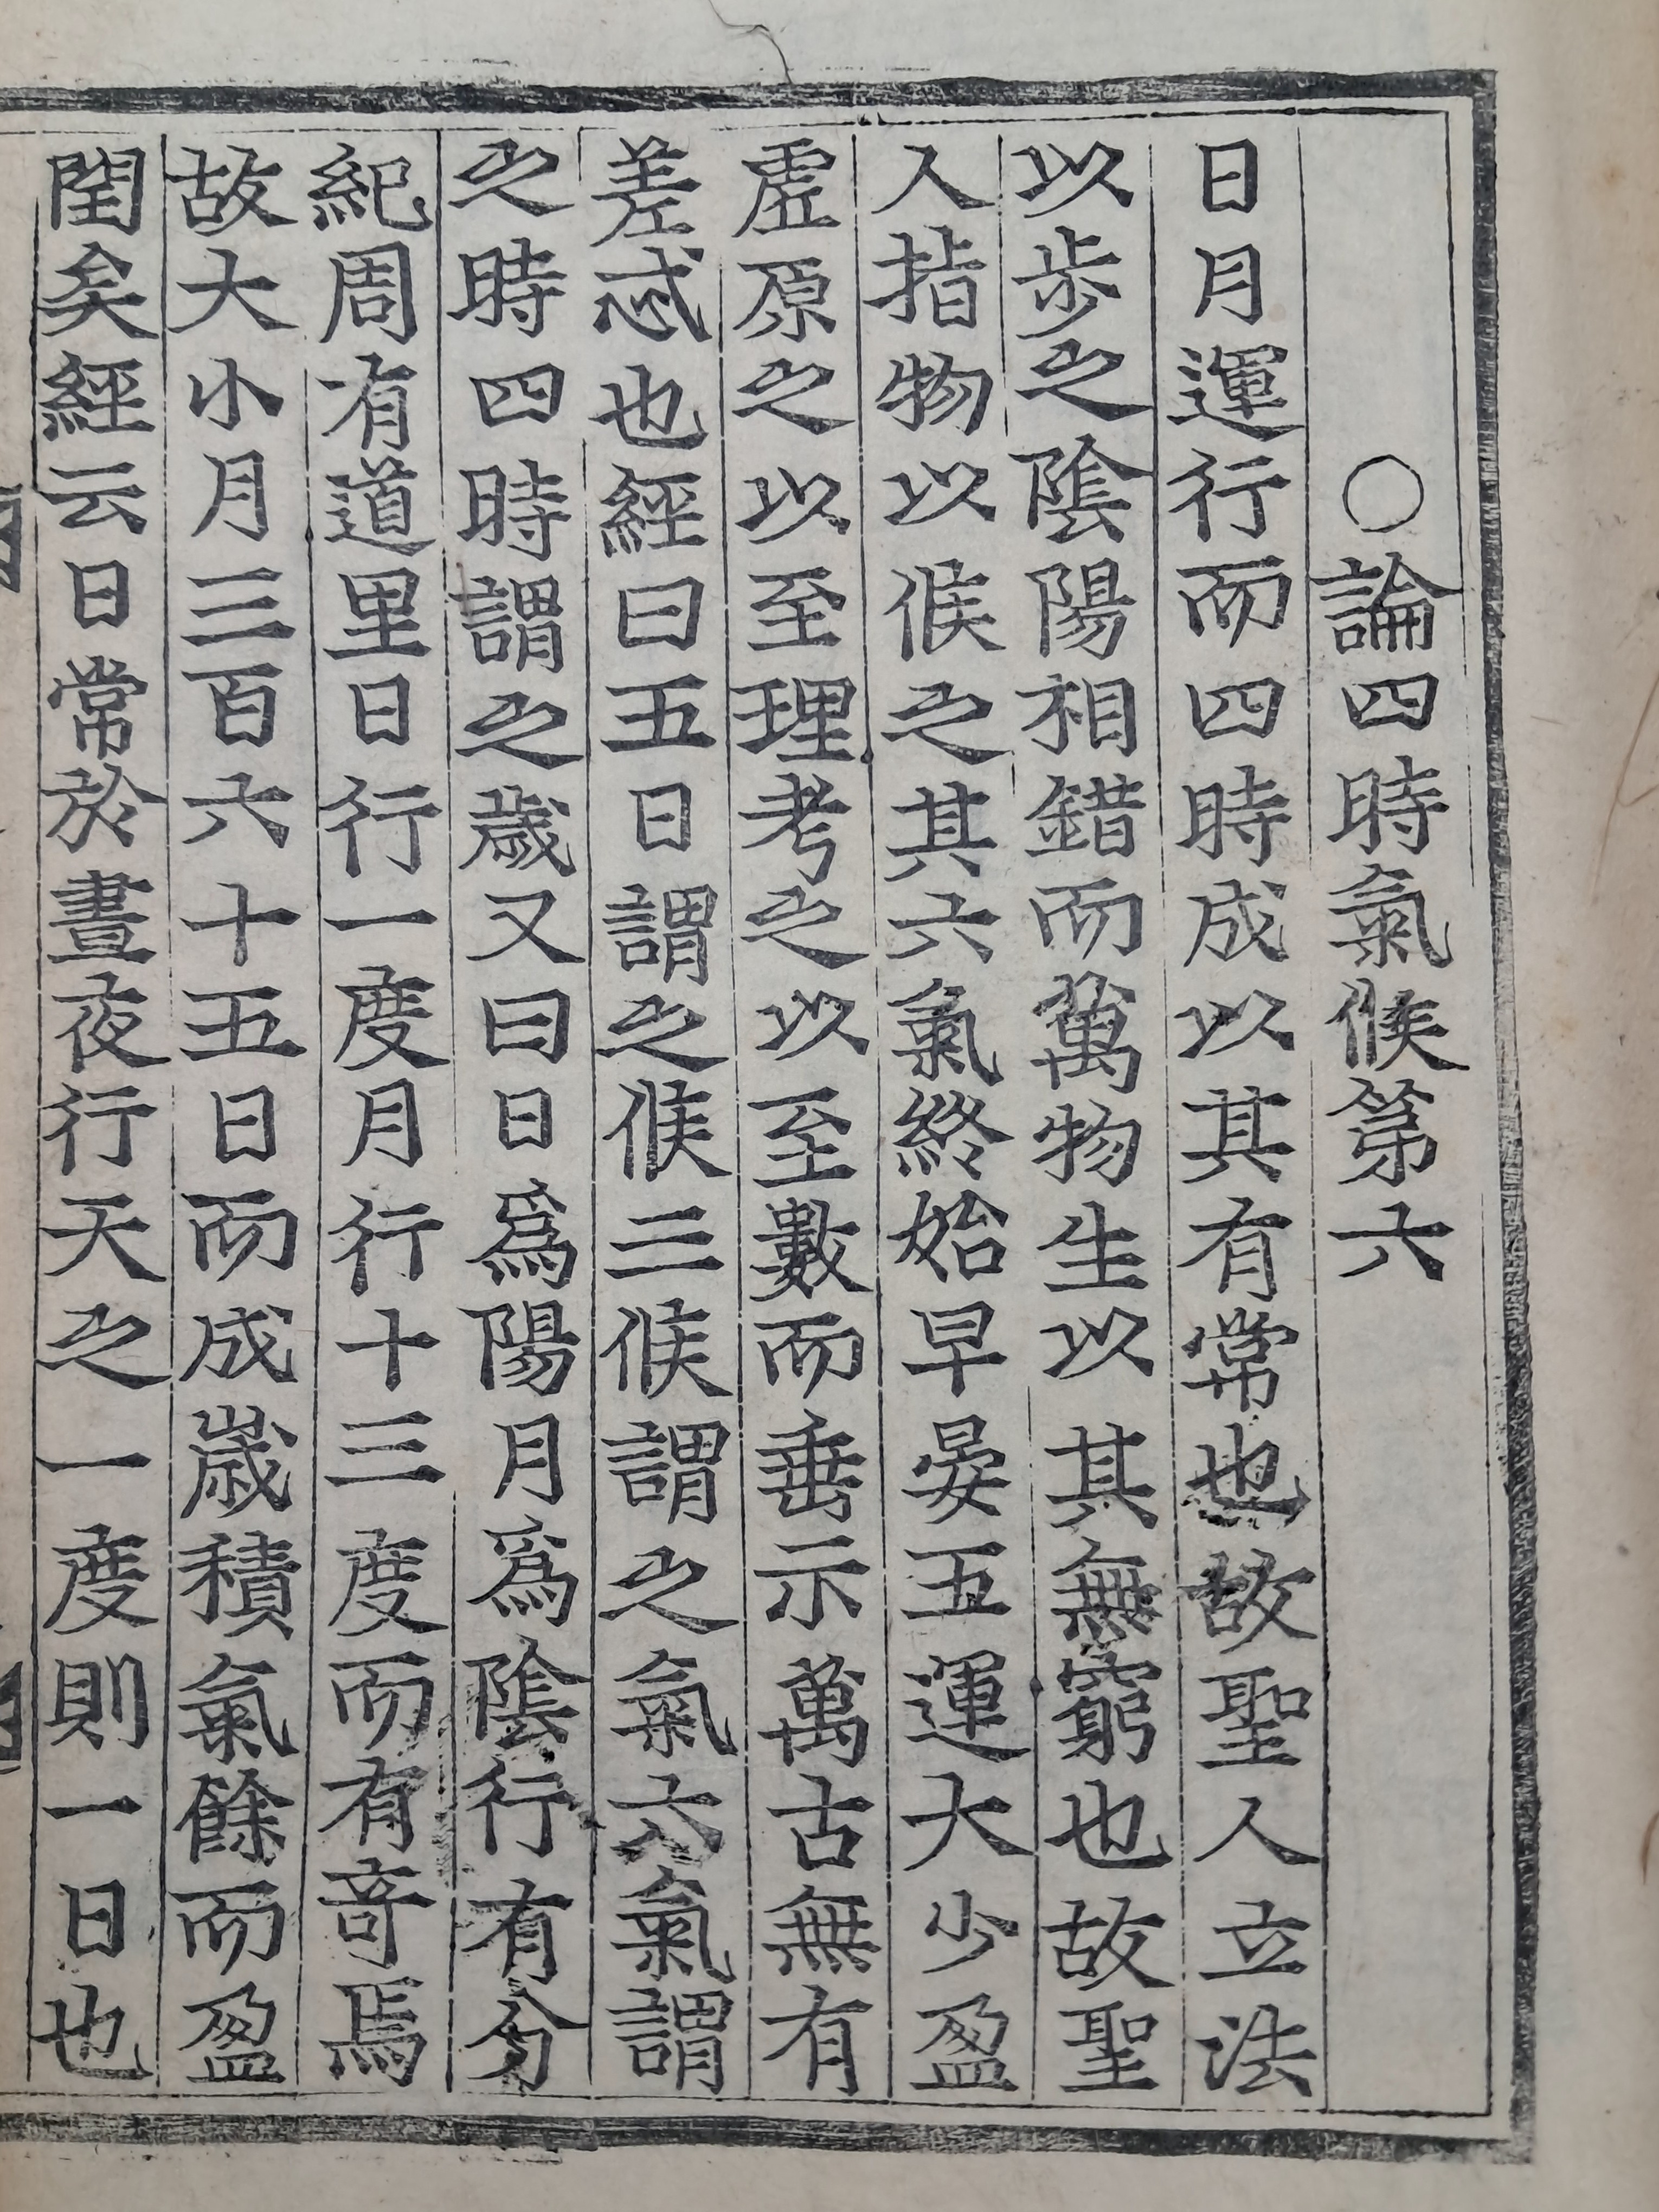 ○論四時氣候第六
日月運行而四時成以其有常也故聖人立法
以步之陰陽相錯而萬物生以其無窮也故聖
人指物以候之其六氣終始早晏五運大少盈
虛原之以至理考之以至數而垂示萬古無有
差忒也經曰五日謂之候三候謂之氣六氣謂
之時四時謂之歲又曰日爲陽月爲陰行有分
紀周有道里日行一度月行十三度而有竒焉
故大小月三百六十五日而成歲積氣餘而盈
閏矣經云日常於晝夜行天之一度則一日也